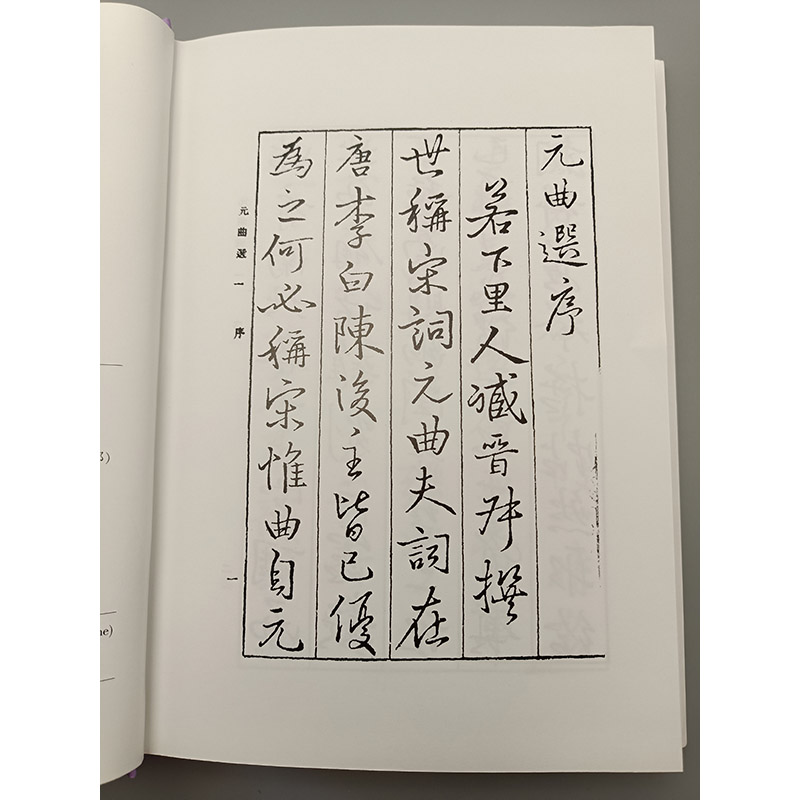 元曲選序
若下里人臧晉叔撰
世稱宋詞元曲夫詞在
唐李白陳後主皆已優
為之何必稱宋惟曲自元
元曲選一 序
一
ne)